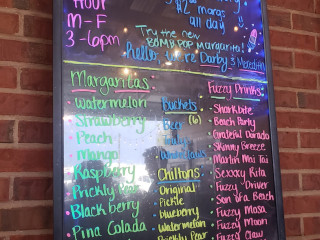 HOUR
M-F
3-6pm
$2 margs
all day
Try the new
BOMB POP Margarita!
Hello there Darby &
Margaritas
Watermelon
Strawberry
Peach
Mango
Raspberry
Prickly Pear
Blackberry
Pina Colada
Buckets
(6)
Chiltons
Original
Pickle
blueberry
Watermelon
Prickly Pear
Fuzzy Drinks
Sharkbite
Beach Party
Grateful Dorado
Skinny Breeze
Martin Mai Tai
Sexxxy Rita
Fuzzy Driver
Son Of a Beach
Fuzzy Mosa
Fuzzy Moon
Fuzzy Claw